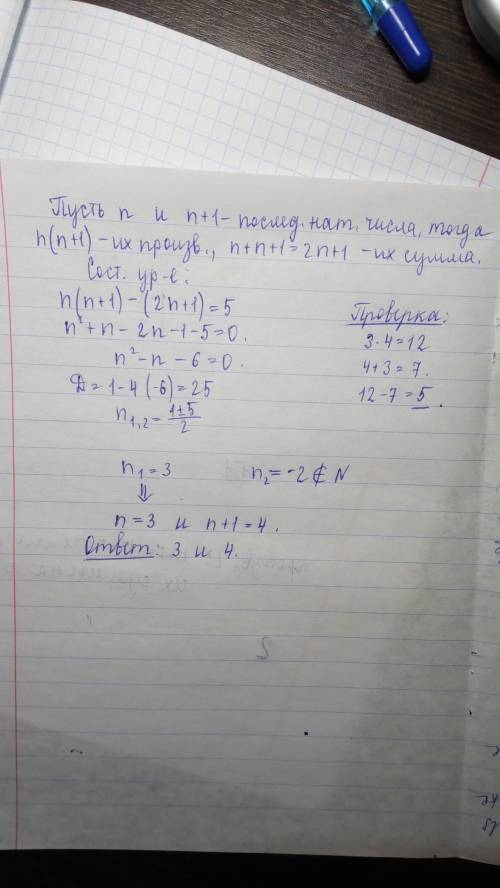 Пусть n и n+1 - послед. нат. числа, тогда
n(n+1) - их произв., n+n+1=2n+1 - их сумма.
Сост. ур-е:
n(n+1)-(2n+1)=5
n²+n-2n-1-5=0.
n²-n-6=0.
Д=1-4(-6)=25
n₁,₂=(1±5)/2
n₁=3 n₂=-2∉N
⇓
n=3 и n+1=4.
Ответ: 3 и 4.
Проверка:
3·4=12
4+3=7.
12-7=5.